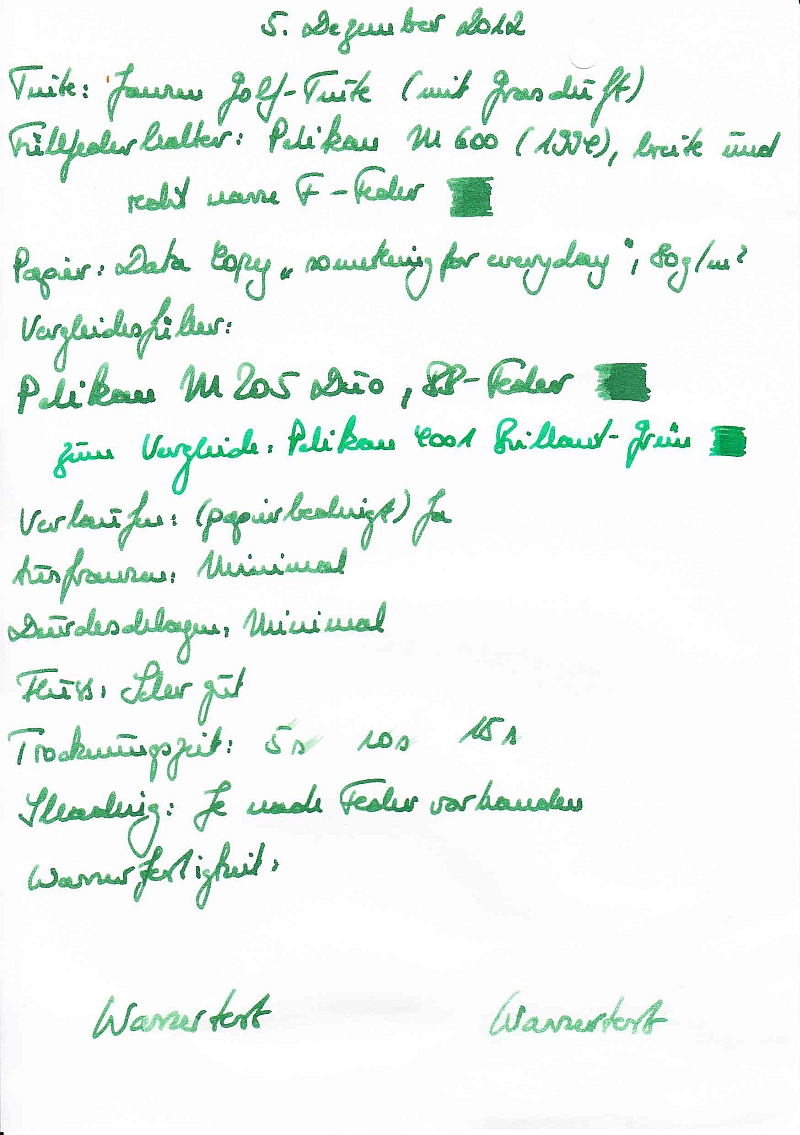 5. Dezember 2012
Tinte: Jansen Golf-Tinte (mit Grasduft)
Füllfederhalter: Pelikan M 600 (1994), breite und
recht nasse F-Feder
Papier: Data Copy „something for everyday", 80g/m²
Vergleichsfüller:
Pelikan M 205 Duo, BB-Feder
zum Vergleich: Pelikan 4001 Brillant-Grün
Verlaufen: (papierbedingt) Ja
Ausfransen: Minimal
Durchschlagen: Minimal
Fluss: Sehr gut
Trocknungszeit: 5s 10s 15s
Shading: Je nach Feder vorhanden
Wasserfestigkeit:
Wassertest Wassertest